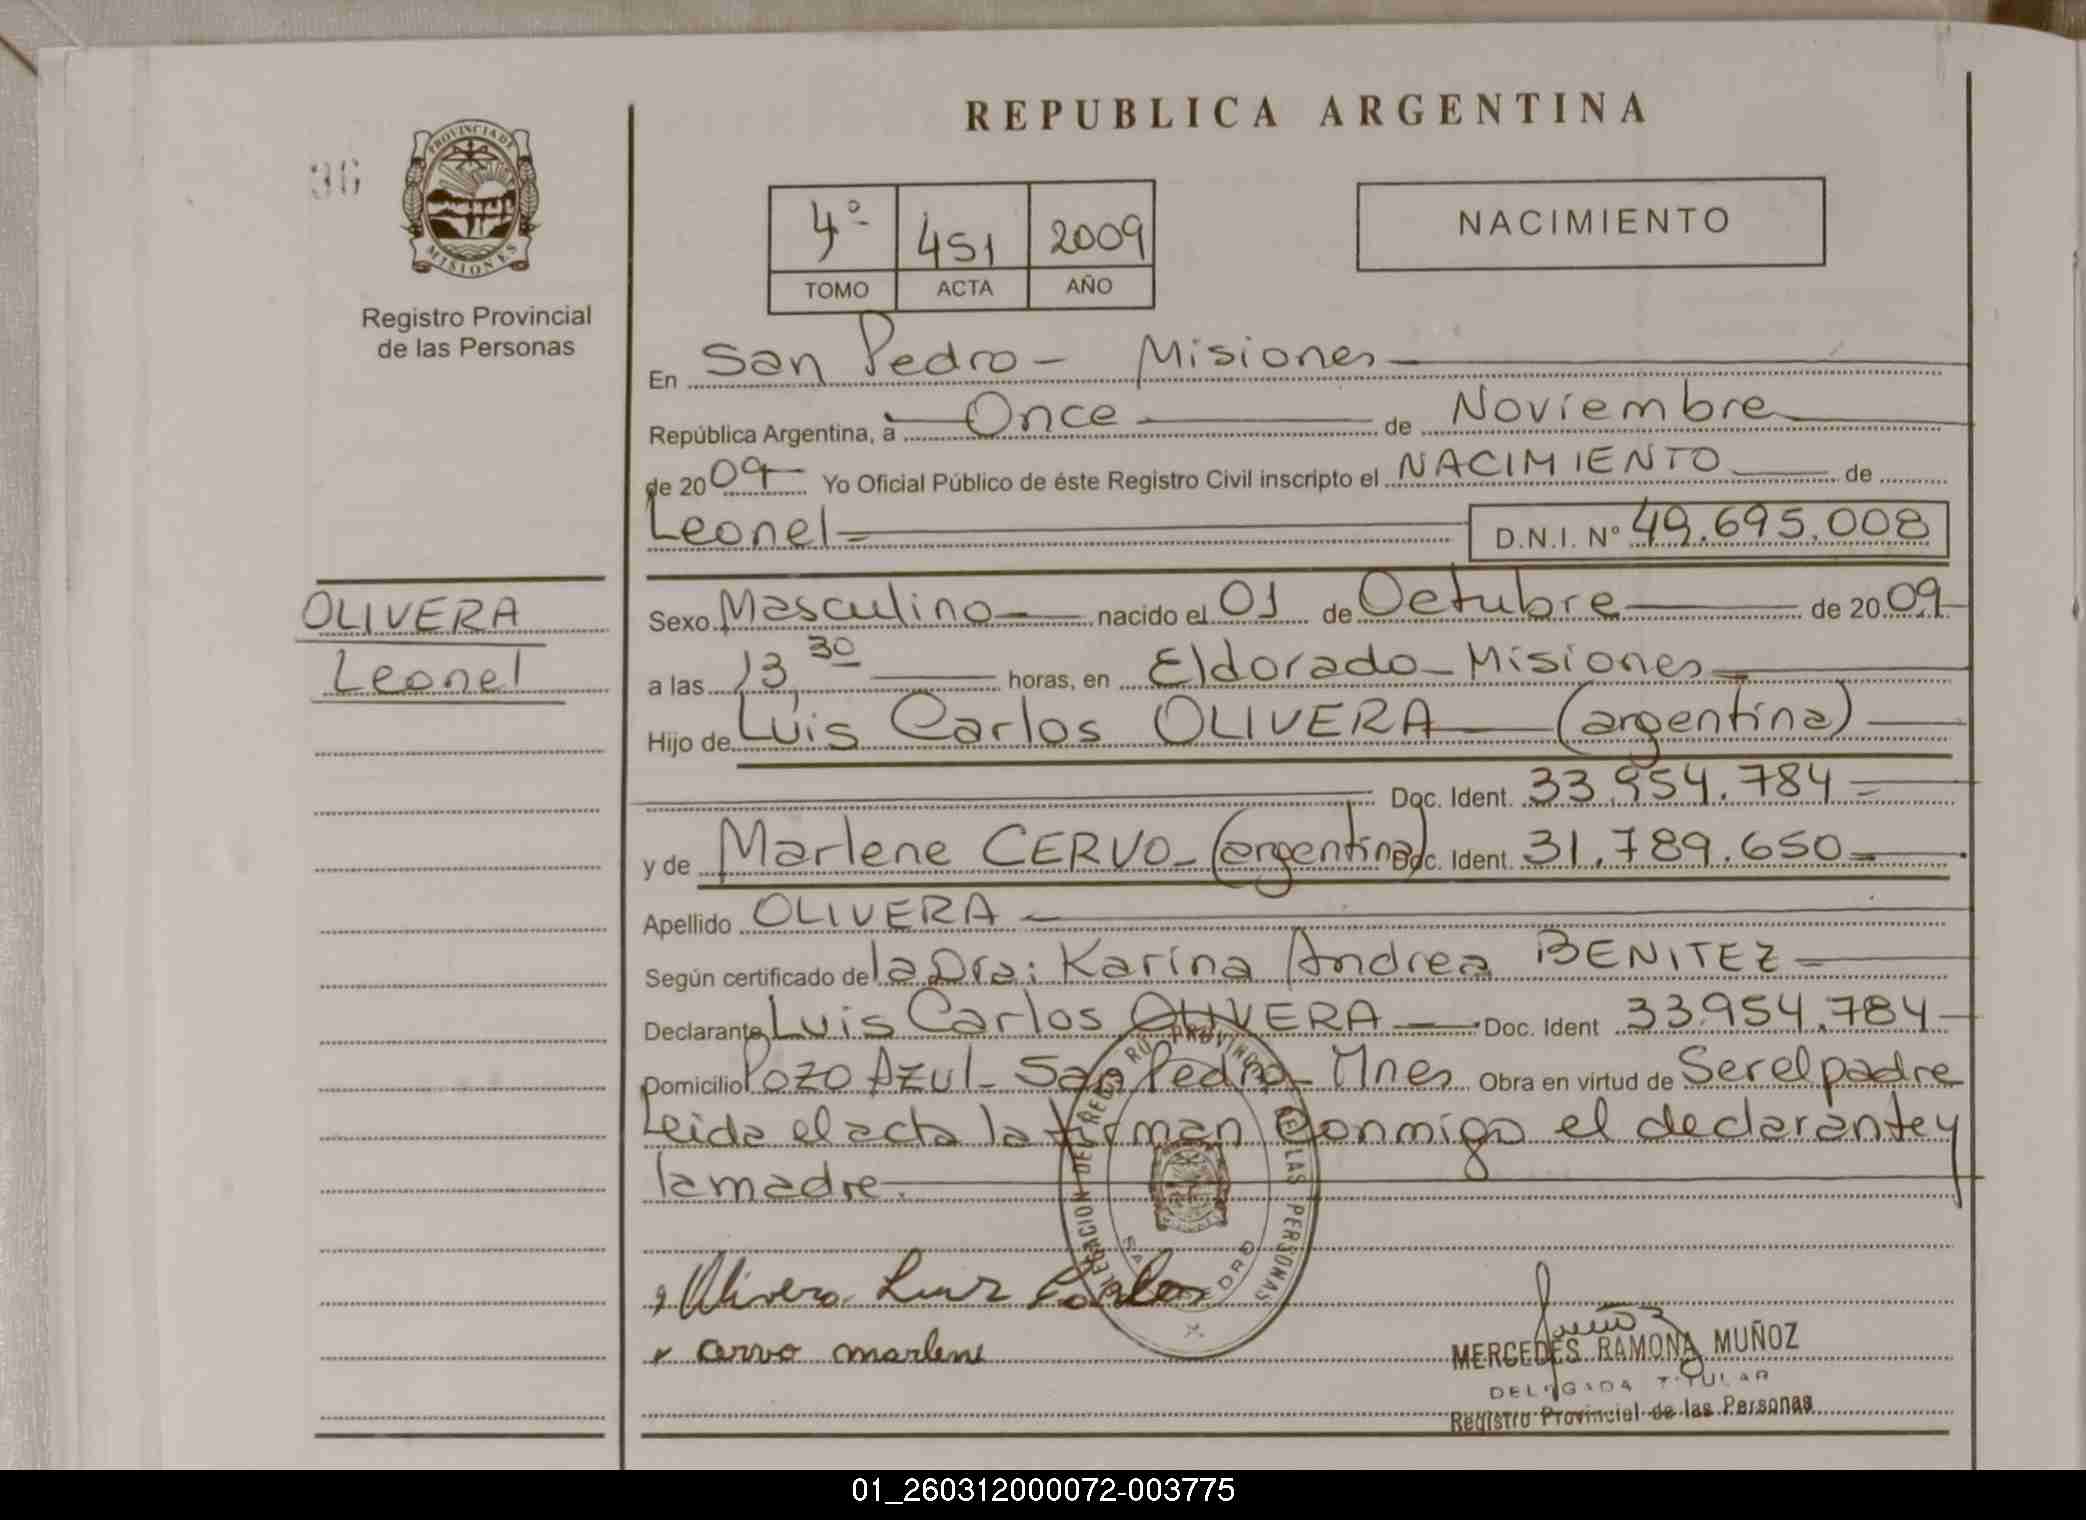 REPUBLICA ARGENTINA
36
PROVINCIA DE
MISIONES
Registro Provincial
de las Personas
4º 451 2009
TOMO ACTA AÑO
NACIMIENTO
En San Pedro - Misiones
República Argentina, a Once de Noviembre
de 2009 Yo Oficial Público de éste Registro Civil inscripto el NACIMIENTO de
Leonel D.N.I. Nº 49.695.008
OLIVERA
Leonel
Sexo Masculino nacido el 01 de Octubre de 2009
a las 13,30 horas, en Eldorado - Misiones
Hijo de Luis Carlos OLIVERA (argentina)
Doc. Ident. 33.954.784
y de Marlene CERVO - (argentina) Doc. Ident. 31.789.650
Apellido OLIVERA
Según certificado de la Dra: Karina Andrea BENITEZ
Declarante Luis Carlos OLIVERA Doc. Ident 33.954.784
Domicilio Pozo Azul - San Pedro - Mnes Obra en virtud de Ser el padre
Leida el acta la firman conmigo el declarante y
la madre.
DELEGACION DEL REGISTRO PROVINCIAL DE LAS PERSONAS
SAN PEDRO
Olivera Luiz Carlos
cervo marlene
MERCEDES RAMONA MUÑOZ
DELEGADA TITULAR
Registro Provincial de las Personas
01_260312000072-003775